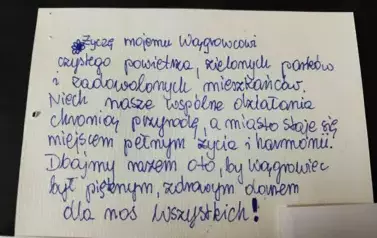 Życzę mojemu Wągrowcowi
czystego powietrza, zielonych parków
i zadowolonych mieszkańców.
Niech nasze wspólne działania
chronią przyrodę, a miasto staje się
miejscem pełnym życia i harmonii.
Dbajmy razem oto, by Wągrowiec
był pięknym, zdrowym domem
dla nas wszystkich!